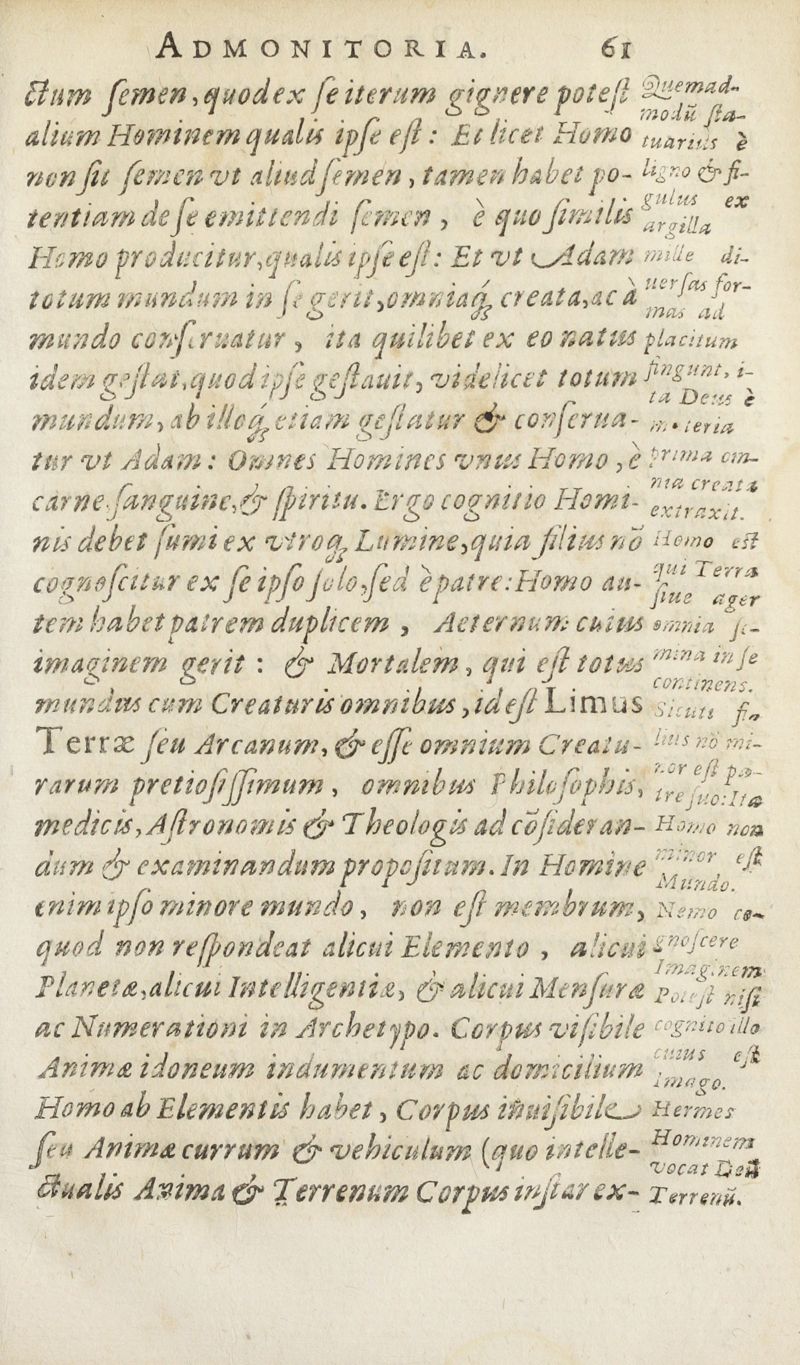 ADMONITORIA. 61
ctum semen, quod ex se iterum gignere potest
alium Hominem qualis ipse est: Et licet Homo
non sit semen vt aliud semen, tamen habet po-
tentiam de se emittendi semen, è quo similis
Homo producitur, qualis ipse est: Et vt Adam
totum mundum in se gerit, omniaq́; creata, ac à
mundo conseruatur, ita quilibet ex eo natus
idem gestat, quod ipse gestauit, videlicet totum
mundum, ab illoq́; etiam gestatur & conserua-
tur vt Adam: Omnes Homines vnus Homo, è
carne, sanguine, & spiritu. Ergo cognitio Homi-
nis debet sumi ex vtroq́; Lumine, quia filius nō
cognoscitur ex se ipso solo, sed è patre: Homo au-
tem habet patrem duplicem, Aeternum cuius
imaginem gerit: & Mortalem, qui est totus
mundus cum Creaturis omnibus, id est Limus
Terræ seu Arcanum, & esse omnium Creatu-
rarum pretiosissimum, omnibus Philosophis,
medicis, Astronomis & Theologis ad cōsideran-
dum & examinandum propositum. In Homine
enim ipso minore mundo, non est membrum,
quod non respondeat alicui Elemento, alicui
Planetæ, alicui Intelligentiæ, & alicui Mensuræ
ac Numerationi in Archetypo. Corpus visibile
Animæ idoneum indumentum ac domicilium
Homo ab Elementis habet, Corpus inuisibile
seu Animæ currum & vehiculum (quo intelle-
ctualis Anima & Terrenum Corpus instar ex-
Quemad-
modū sta-
tuarius è
ligno & fi-
gulus ex
argilla
mille di-
uersas for-
mas ad
placitum
fingunt, i-
ta Deus è
materia
prima om-
nia creata
extraxit.
Homo est
qui Terra
siue ager
omnia se-
mina in se
continens.
Sicuti fi-
lius nō mi-
nor est pa-
tre suo: Ita
Homo non
minor est
Mundo.
Nemo co-
gnoscere
Imaginem
Potest nisi
cognito illo
cuius est
imago.
Hermes
Hominem
vocat Deū
Terrenū.